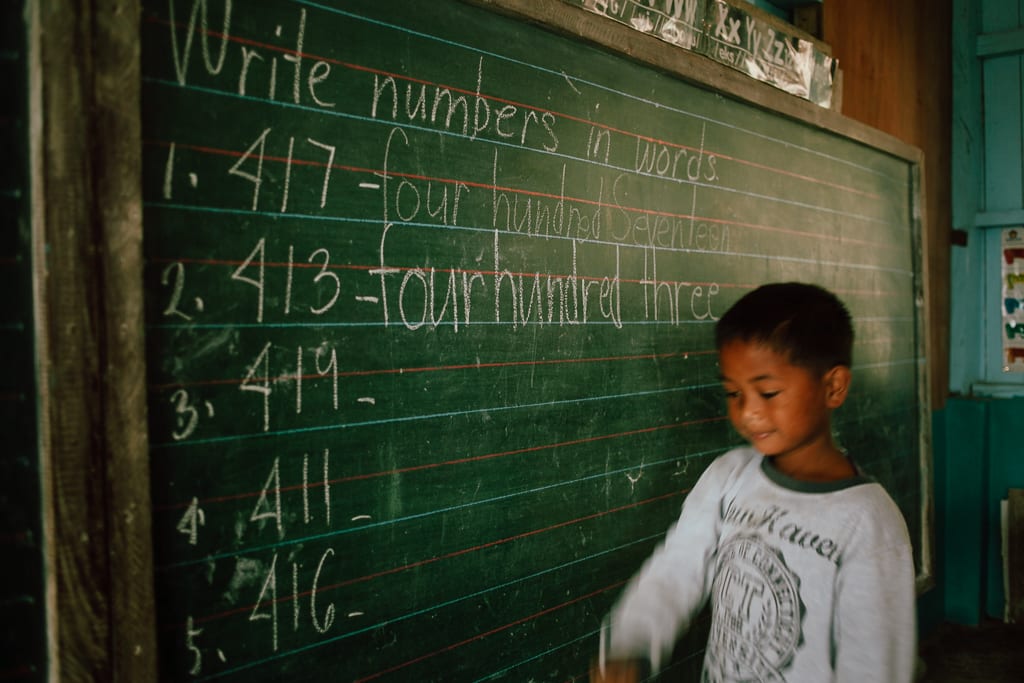 Xx Yy Zz
Write numbers in words.
1. 417 - four hundred Seventeen
2. 413 - four hundred three
3. 419 -
4. 411 -
5. 416 -
Haven